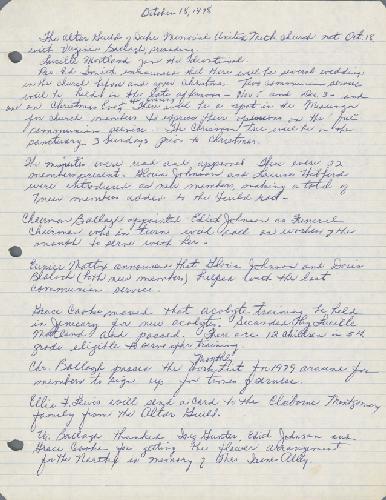 October 18, 1978
The Altar Guild of Duke Memorial United Meth Church met Oct. 18
with Virginia presiding.
Lucille Maitland gave the devotional.
announced that there will be several weddings
in the church before and over Christmas. Two communion services
will be held in the late afternoon - Nov 5 and Dec. 3 - and
one on Christmas Eve. There will be a spot in the Messenger
for church members to express their opinions on the
communion service. The Chrismon tree will be in the
sanctuary 3 Sundays prior to Christmas.
The minutes were read and approved. There were 22
members present. Gloria Johnson and
were introduced as new members, making a total of
new members added to the Guild
Chairman appointed Edith Johnson as Funeral
Chairman who in turn would call on workers of the
month to serve with her.
Eunice Mattox announced that Gloria Johnson and Doris
(both new members) helped with the last
communion service.
Grace Cooke moved that acolyte training be held
in January for new acolytes. Seconded by Lucille
Maitland & also passed. There are 12 children in 5th
grade eligible to serve after training.
Monthly
Chr. passed the Work List for 1979 around for
members to sign up for times of service.
Lewis will send a card to the Claiborne Montgomery
family from the Altar Guild.
thanked Gunter, Edith Johnson and
Grace Cooke for getting the flower arrangement
for the Narthex in memory of Irene